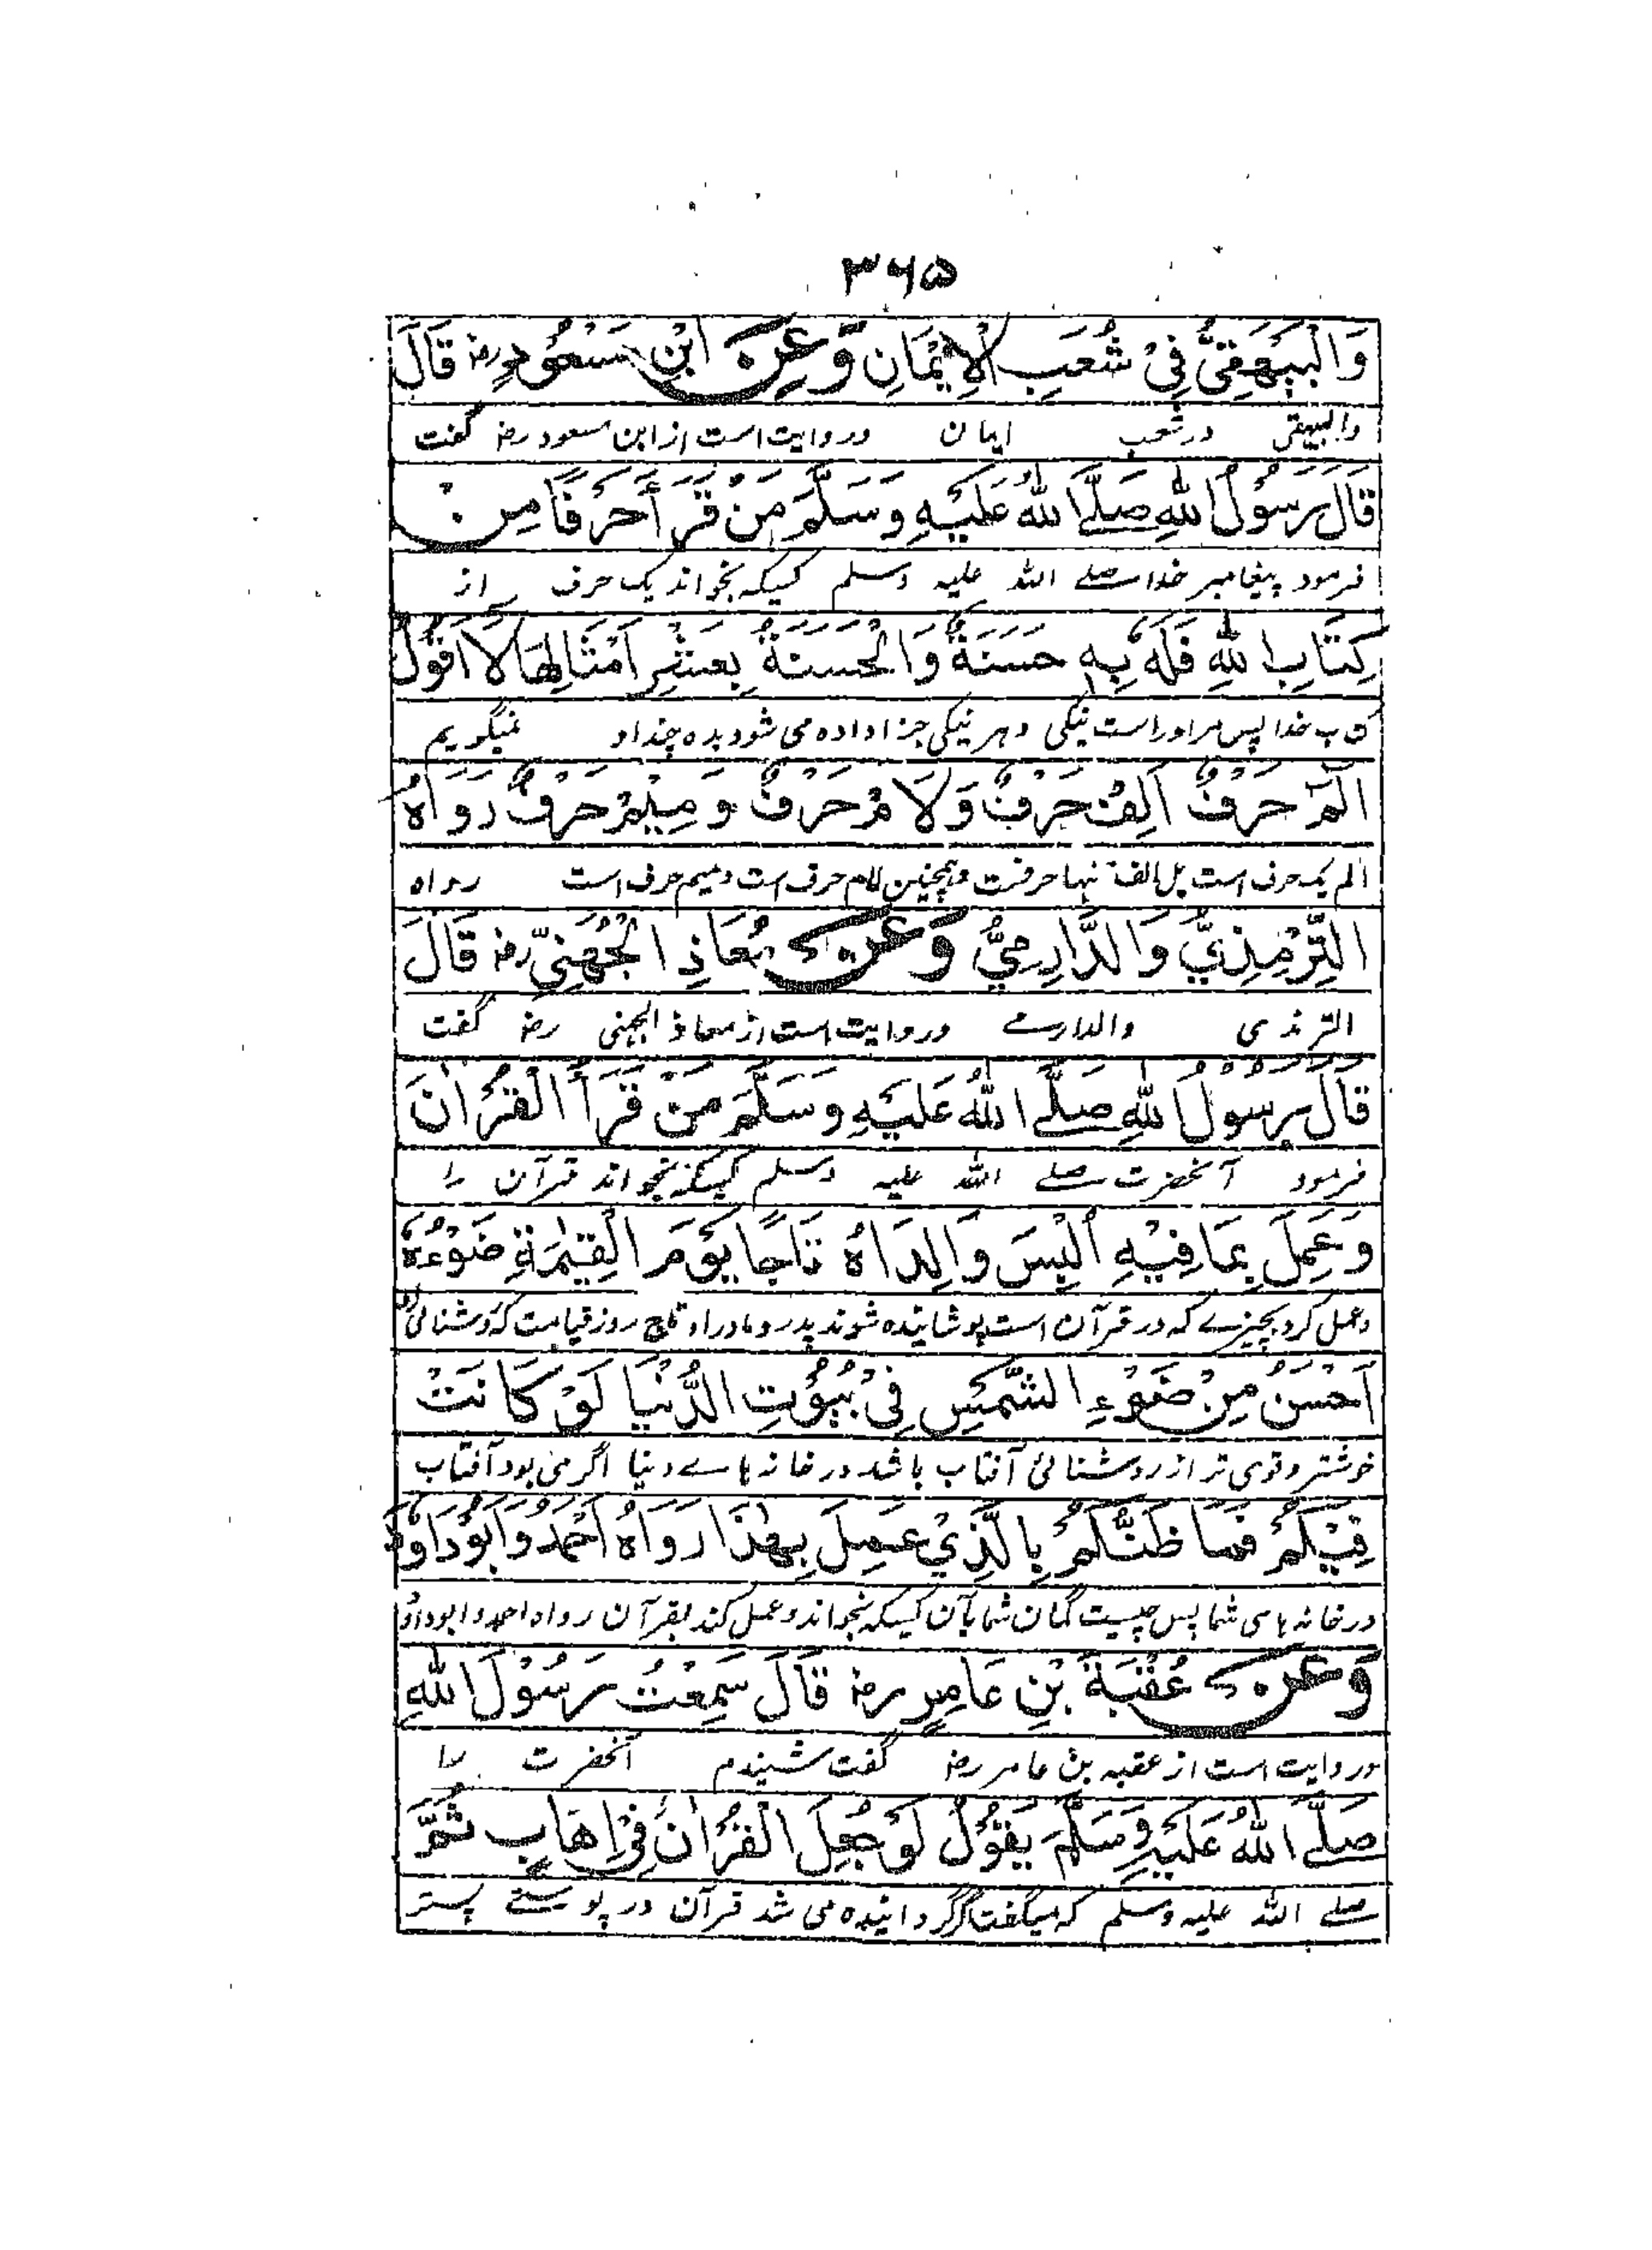 ۳۶۵
وَالْبَيْهَقِيُّ فِيْ شُعَبِ الْاِيْمَانِ وَعَنْ ابْنِ مَسْعُوْدٍ رضہ قَالَ
والبیہقی درشعب ایمان و روایت است از ابن مسعود رضہ گفت
قَالَ رَسُوْلُ اللهِ صَلَّے اللهُ عَلَيْهِ وَسَلَّمَ مَنْ قَرَأَ حَرْفًا مِنْ
فرمود پیغامبر خدا صلے اللہ علیہ وسلم کسیکہ بخواند یک حرف از
كِتَابِ اللهِ فَلَهٗ بِهٖ حَسَنَةٌ وَالْحَسَنَةُ بِعَشْرِ اَمْثَالِهَا لَا اَقُوْلُ
کتاب خدا پس مر او راست نیکی و ہر نیکی جزا دادہ می شود بدہ چند او نمیگویم
الٓمٓ حَرْفٌ اَلِفٌ حَرْفٌ وَلَامٌ حَرْفٌ وَمِيْمٌ حَرْفٌ رَوَاهُ
الم یک حرف است بل الف تنہا حرفست و ہمچنین لام حرف است و میم حرف است رواہ
التِّرْمِذِيُّ وَالدَّارِمِيُّ وَعَنْ مُعَاذِ الْجُهَنِيِّ رضہ قَالَ
الترمذی والدارمے و روایت است از معاذ الجہنی رضہ گفت
قَالَ رَسُوْلُ اللهِ صَلَّے اللهُ عَلَيْهِ وَسَلَّمَ مَنْ قَرَأَ الْقُرْاٰنَ
فرمود آنحضرت صلے اللہ علیہ وسلم کسیکہ بخواند قرآن را
وَعَمِلَ بِمَا فِيْهِ اُلْبِسَ وَالِدَاهُ تَاجًا يَوْمَ الْقِيٰمَةِ ضَوْءُهٗ
وعمل کرد بچیزے کہ در قرآن است پوشانیدہ شوند پدر و مادر او تاج روز قیامت کہ روشنائی او
اَحْسَنُ مِنْ ضَوْءِ الشَّمْسِ فِيْ بُيُوْتِ الدُّنْيَا لَوْ كَانَتْ
خوشتر و قوی تر از روشنائی آفتاب باشد در خانہ ہاے دنیا اگر می بود آفتاب
فِيْكُمْ فَمَا ظَنُّكُمْ بِالَّذِيْ عَمِلَ بِهٰذَا رَوَاهُ اَحْمَدُ وَاَبُوْدَاوٗدَ
در خانہ ہای شما پس چیست گمان شما بآن کسیکہ بخواند و عمل کند بقرآن رواہ احمد و ابوداؤد
وَعَنْ عُقْبَةَ بْنِ عَامِرٍ رضہ قَالَ سَمِعْتُ رَسُوْلَ اللهِ
و روایت است از عقبہ بن عامر رضہ گفت شنیدم آنحضرت را
صَلَّے اللهُ عَلَيْهِ وَسَلَّمَ يَقُوْلُ لَوْ جُعِلَ الْقُرْاٰنُ فِيْ اِهَابٍ ثُمَّ
صلے اللہ علیہ وسلم کہ میگفت اگر گردانیدہ می شد قرآن در پوستے پستر